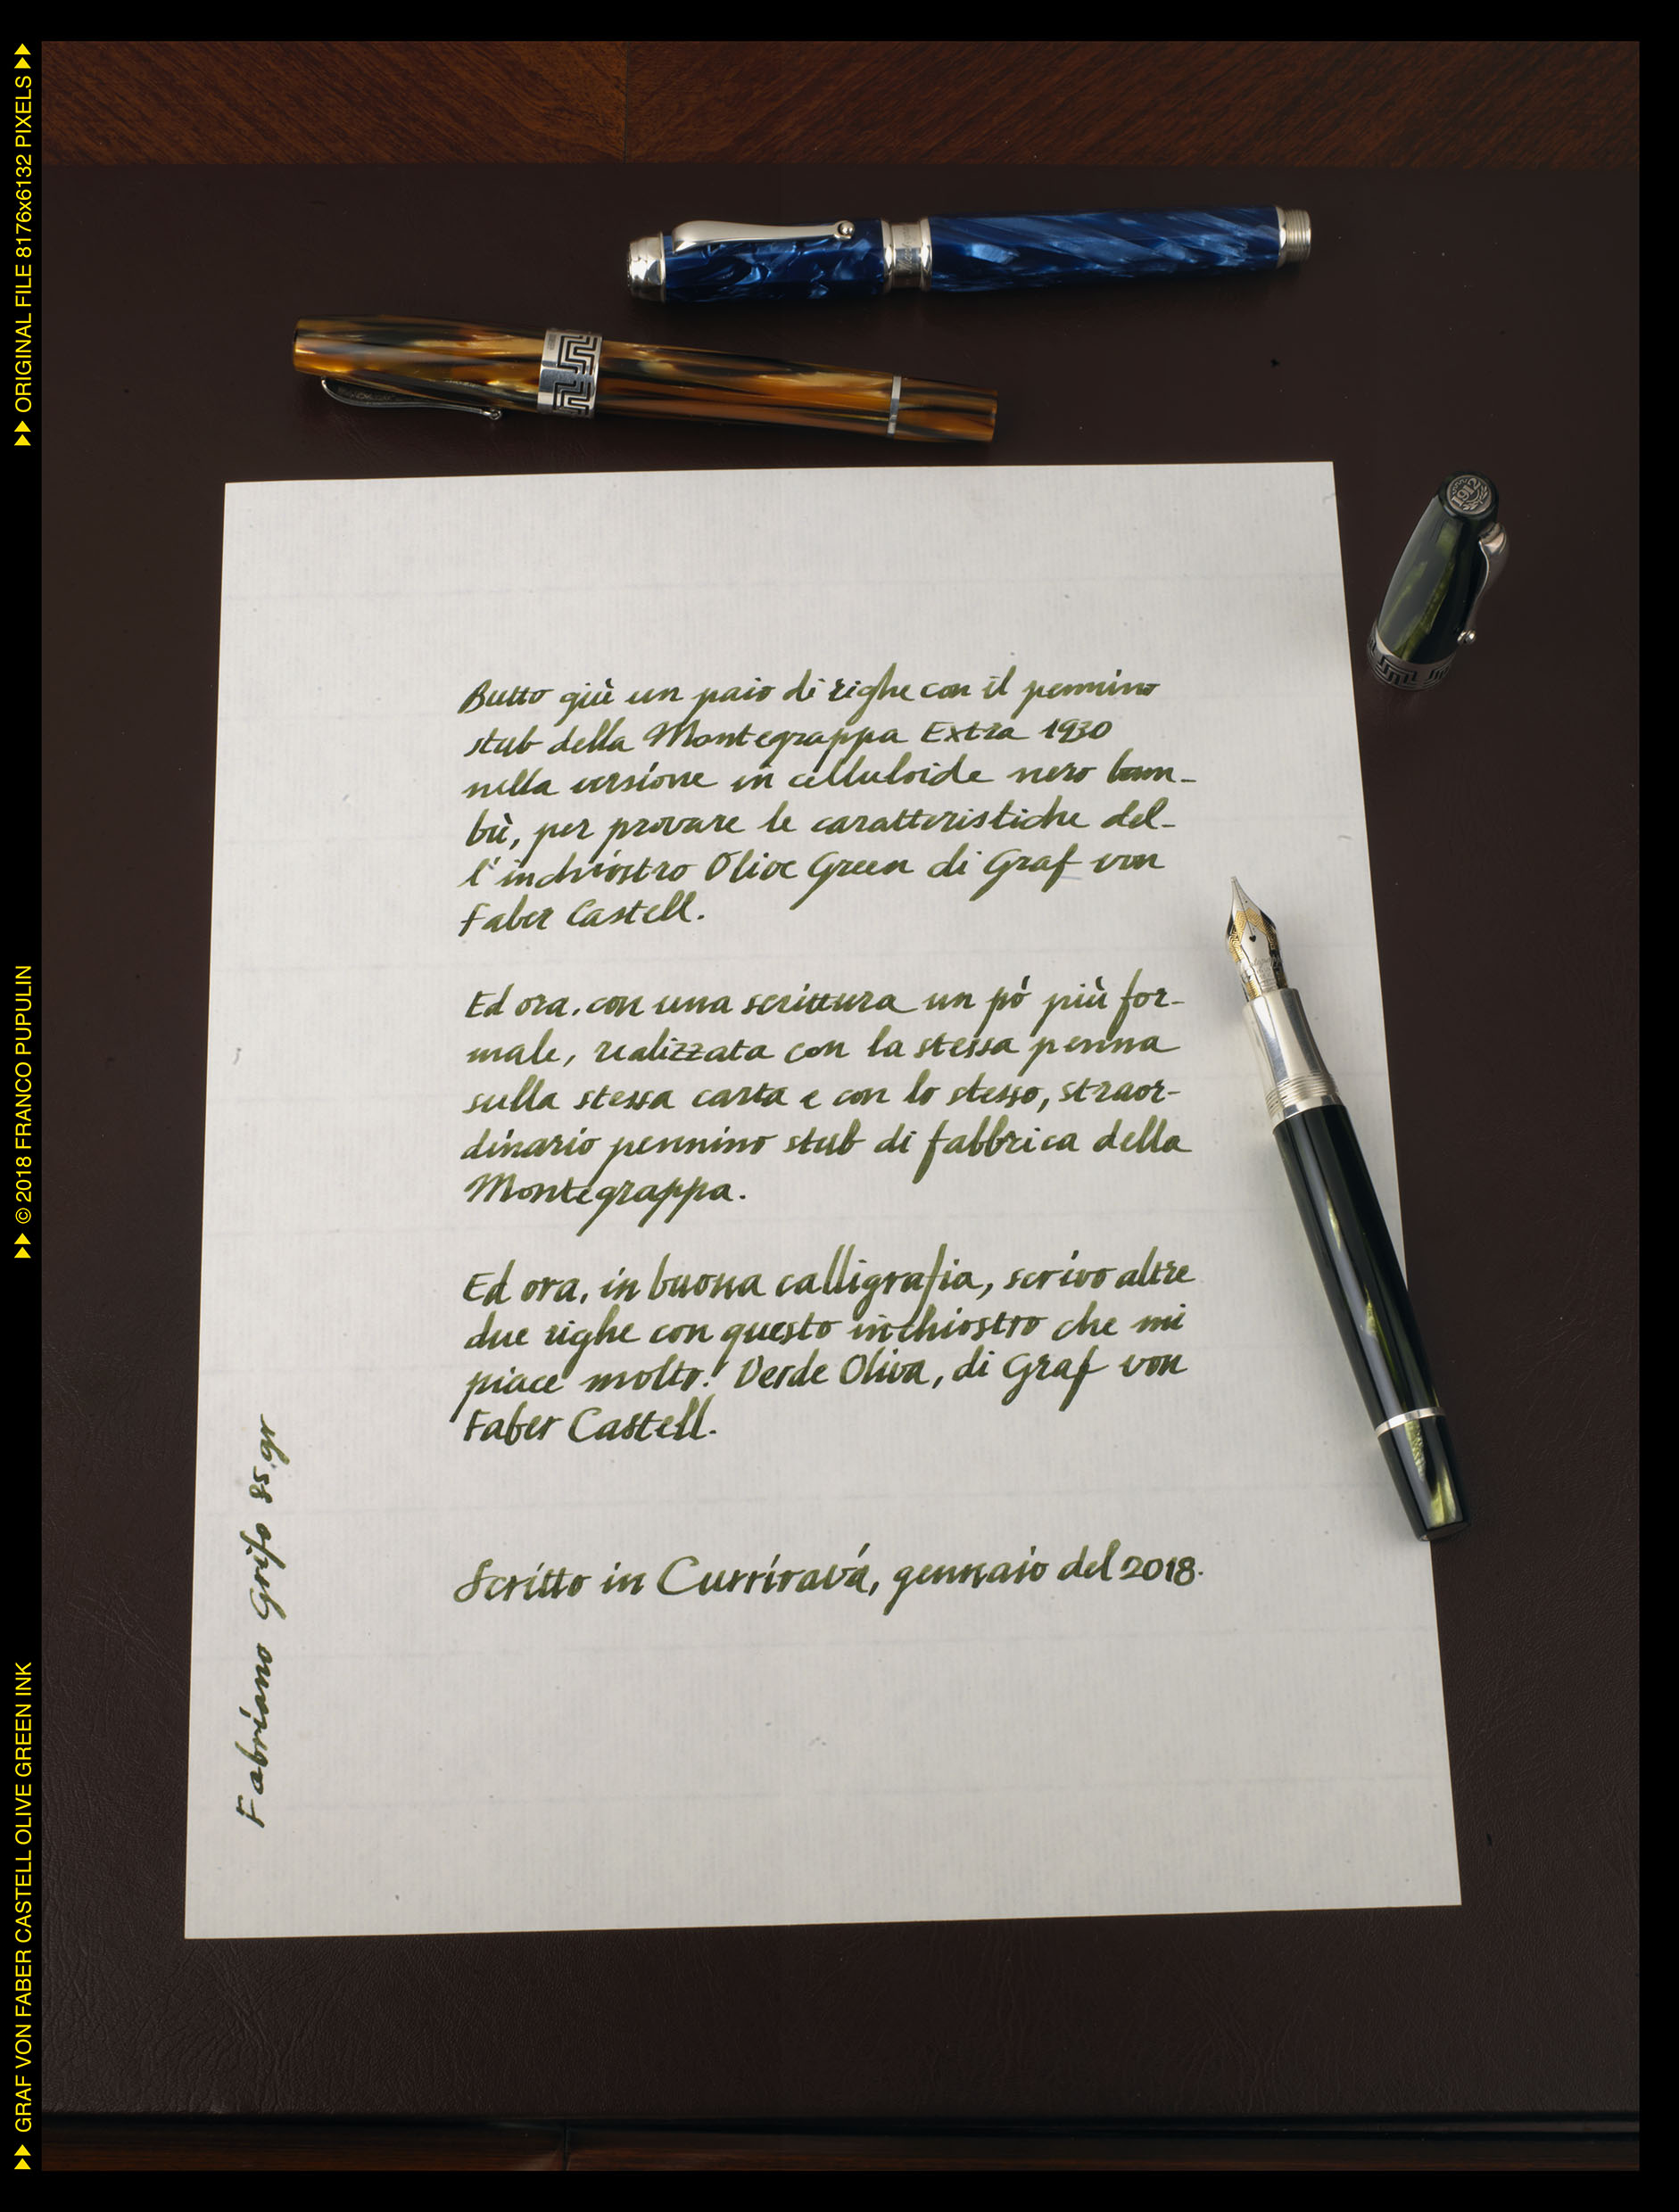 Butto giù un paio di righe con il pennino
stub della Montegrappa Extra 1930
nella versione in celluloide nero bam-
bù, per provare le caratteristiche del-
l'inchiostro Olive Green di Graf von
Faber Castell.
Ed ora, con una scrittura un pò più for-
male, realizzata con la stessa penna
sulla stessa carta e con lo stesso, straor-
dinario pennino stub di fabbrica della
Montegrappa.
Ed ora, in buona calligrafia, scrivo altre
due righe con questo inchiostro che mi
piace molto! Verde Oliva, di Graf von
Faber Castell.
Scritto in Curríravá, gennaio del 2018.
Fabriano Grifo 85 gr
1912
ORIGINAL FILE 8176x6132 PIXELS
© 2018 FRANCO PUPULIN
GRAF VON FABER CASTELL OLIVE GREEN INK